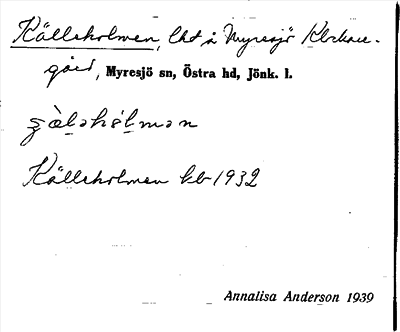 Källeholmen, lht å Myresjö Klockare-
gård, Myresjö sn, Östra hd, Jönk. l.
Källeholmen kb 1932
Annalisa Anderson 1939